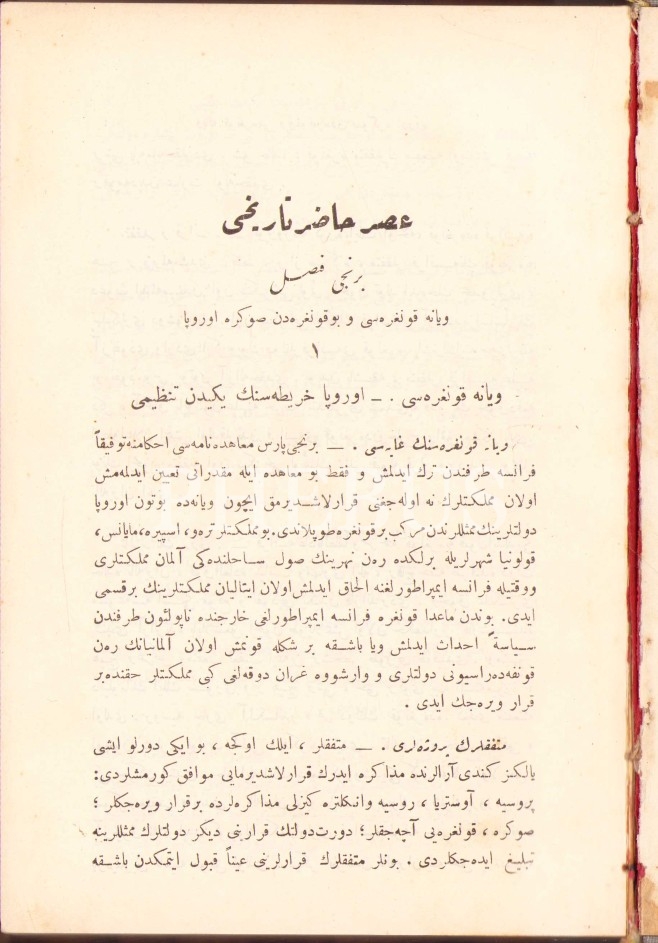 عصر حاضر تاريخى
برنجى فصل
ويانه قونغره‌سى و بوقونغره‌دن صوكره اوروپا
١
ويانه قونغره‌سى . — اوروپا خريطه‌سنك يكيدن تنظيمى
ويانه قونغره‌سنك غايه‌سى . — برنجى پارس معاهده‌نامه‌سى احكامنه توفيقاً
فرانسه طرفندن ترك ايدلمش و فقط بو معاهده ايله مقدراتى تعيين ايدلمه‌مش
اولان مملكتلرك نه اوله‌جغنى قرارلاشديرمق ايچون ويانه‌ده بوتون اوروپا
دولتلرينك ممثللرندن مركب برقونغره طوپلاندى. بومملكتلر تره‌و، اسپيره، مايانس،
قولونيا شهرلريله برلكده ره‌ن نهرينك صول ساحلنده‌كى آلمان مملكتلرى
ووقتيله فرانسه ايمپراطورلغنه الحاق ايدلمش اولان ايتاليان مملكتلرينك برقسمى
ايدى. بوندن ماعدا قونغره فرانسه ايمپراطورلغى خارجنده ناپولئون طرفندن
سياسةً احداث ايدلمش ويا باشقه بر شكله قونمش اولان آلمانيانك ره‌ن
قونفه‌ده‌راسيونى دولتلرى و وارشووه غران دوقه‌لغى كبى مملكتلر حقنده بر
قرار ويره‌جك ايدى .
متفقلرك پروژه‌لرى . — متفقلر ، ايلك اوكجه ، بو ايكى دورلو ايشى
يالكز كندى آرالرنده مذاكره ايدرك قرارلاشديرمايى موافق كورمشلردى:
پروسيه ، آوستريا ، روسيه وانكلتره كيزلى مذاكره‌لرده برقرار ويره‌جكلر ؛
صوكره ، قونغره‌يى آچه‌جقلر؛ دورت دولتك قرارينى ديكر دولتلرك ممثللرينه
تبليغ ايده‌جكلردى . بونلر متفقلرك قرارلرينى عيناً قبول ايتمكدن باشقه